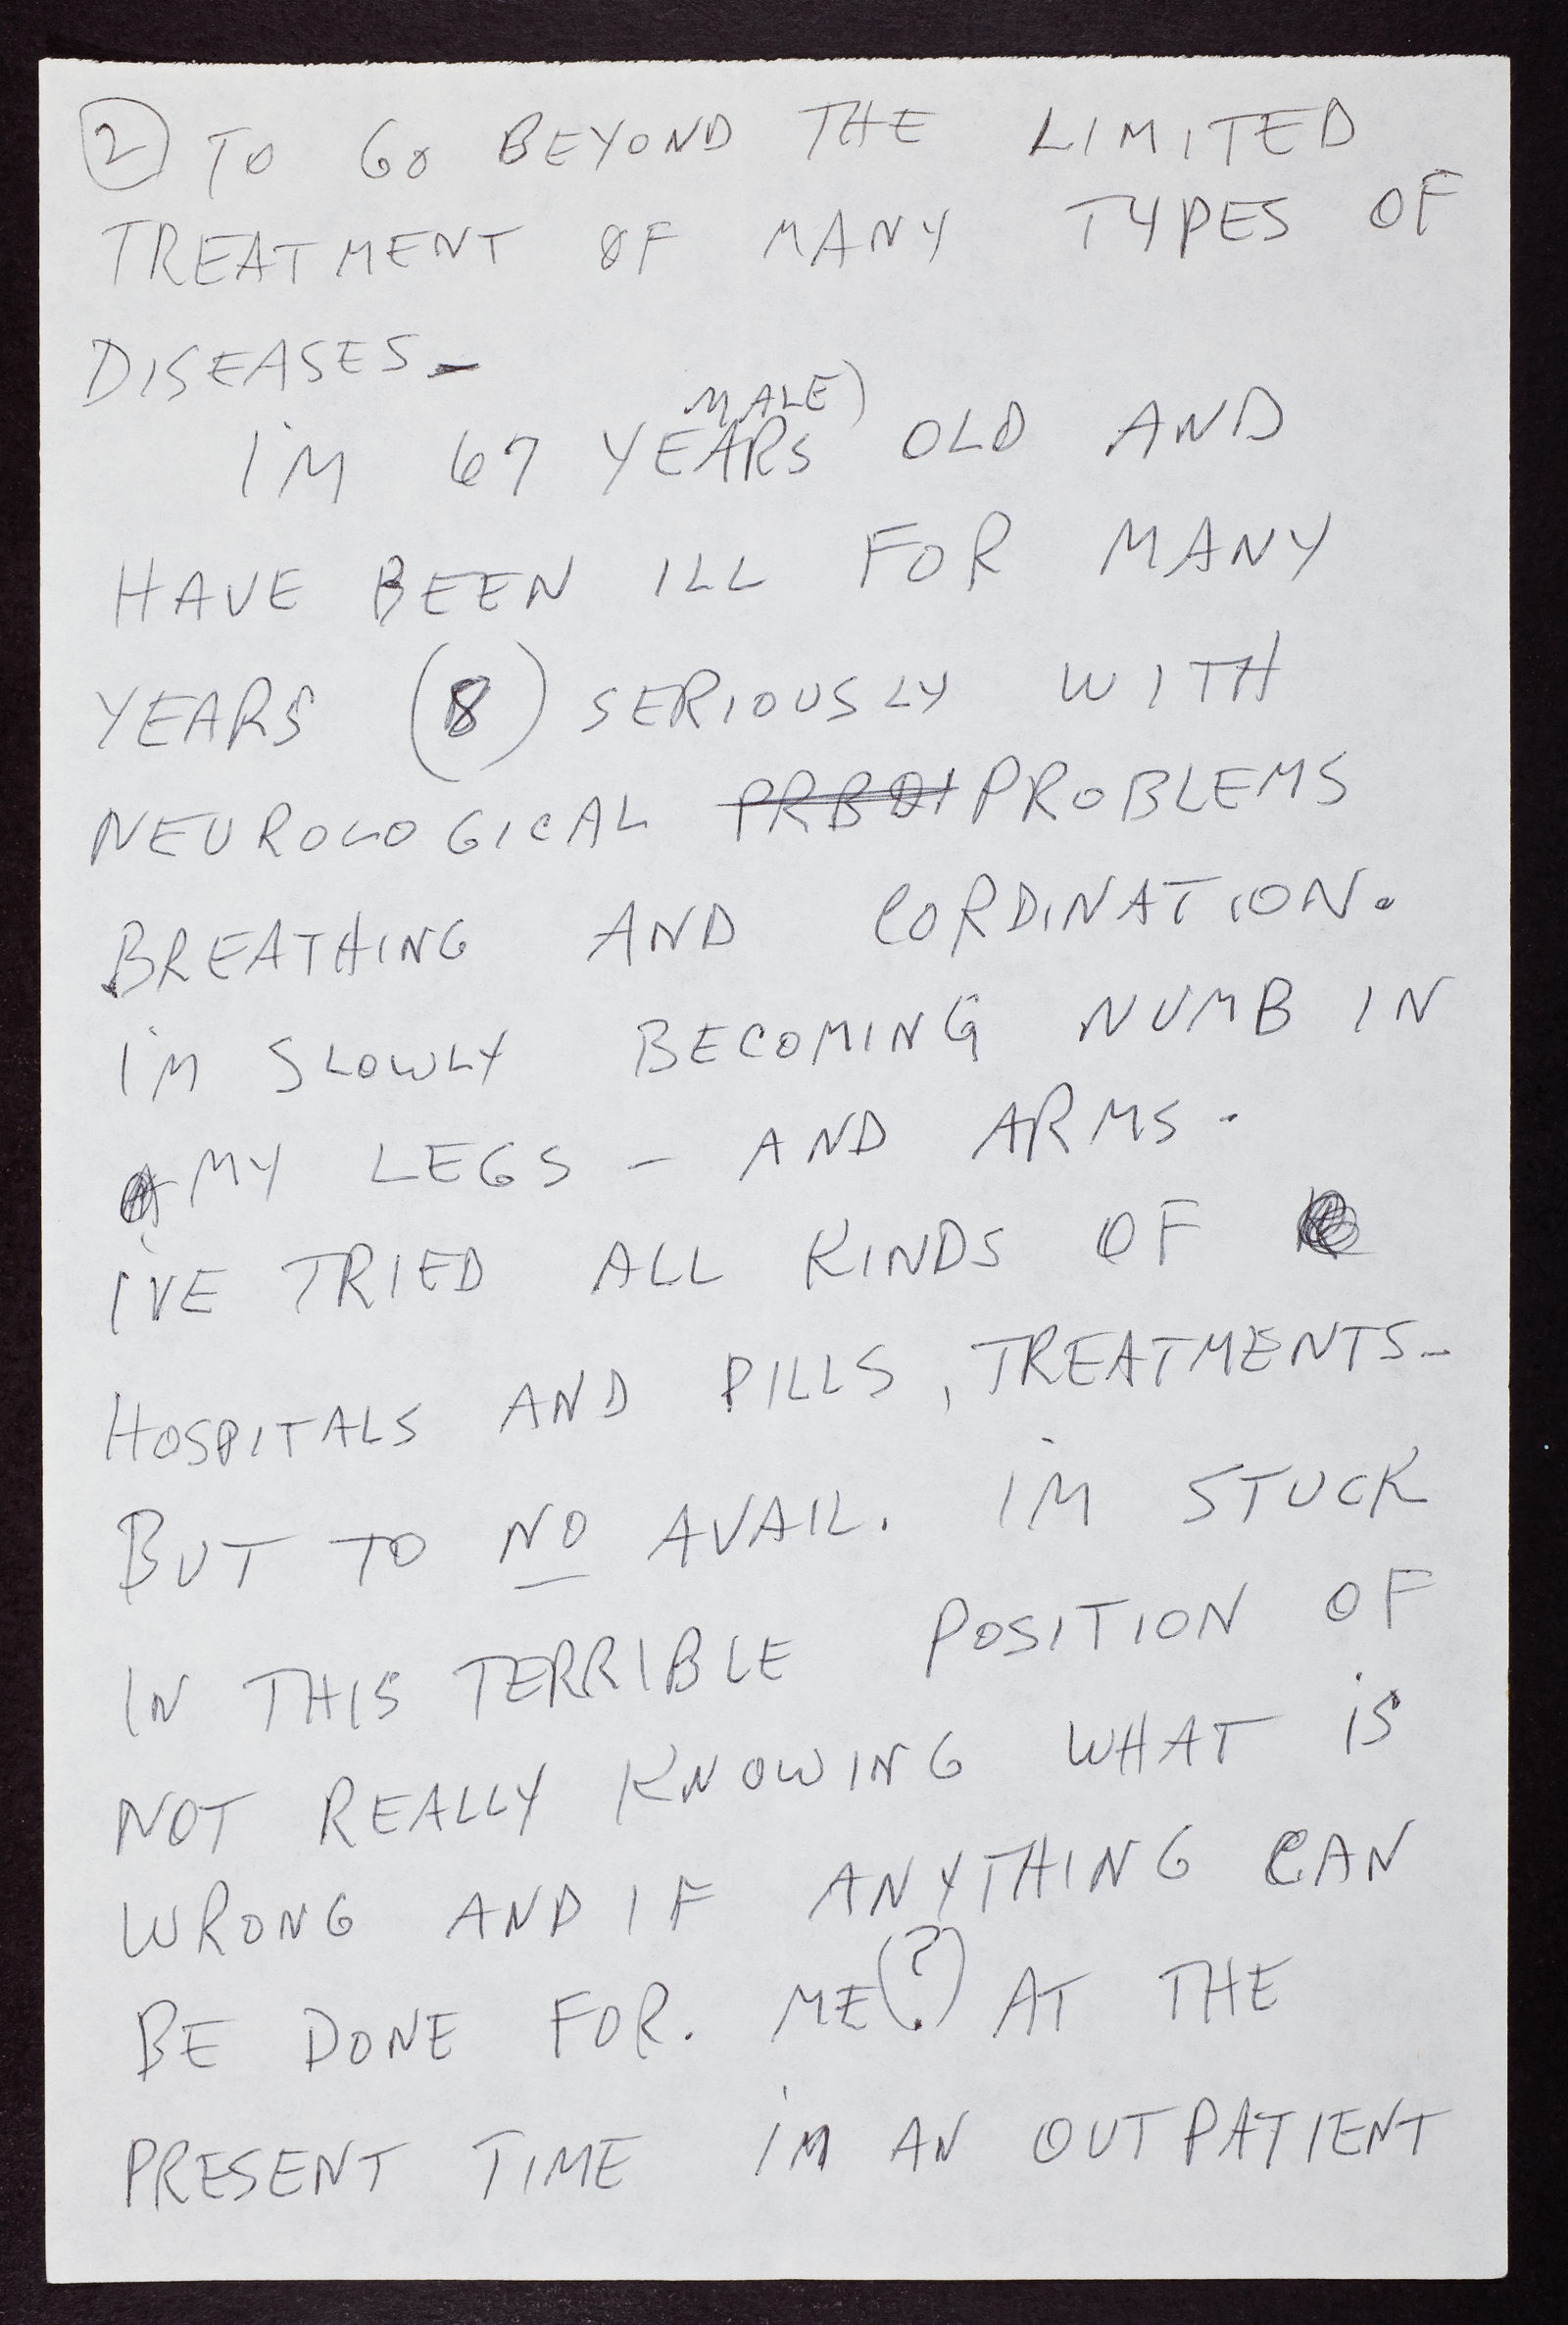 ② TO GO BEYOND THE LIMITED
TREATMENT OF MANY TYPES OF
DISEASES–
MALE)
I'M 67 YEARS OLD AND
HAVE BEEN ILL FOR MANY
YEARS (8) SERIOUSLY WITH
NEUROLOGICAL PROBLEMS
BREATHING AND CORDINATION.
I'M SLOWLY BECOMING NUMB IN
MY LEGS – AND ARMS.
I'VE TRIED ALL KINDS OF
HOSPITALS AND PILLS, TREATMENTS–
BUT TO NO AVAIL. I'M STUCK
IN THIS TERRIBLE POSITION OF
NOT REALLY KNOWING WHAT IS
WRONG AND IF ANYTHING CAN
BE DONE FOR. ME(?) AT THE
PRESENT TIME I'M AN OUTPATIENT